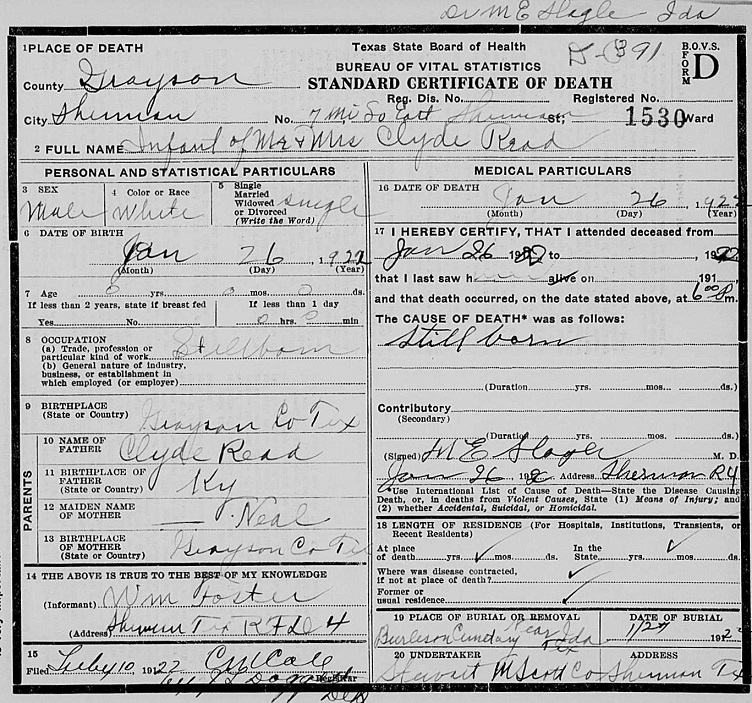 Dr M E Slagle Ida
1 PLACE OF DEATH
Texas State Board of Health
BUREAU OF VITAL STATISTICS
STANDARD CERTIFICATE OF DEATH
B.O.V.S. FORM D
391
County Grayson
Reg. Dis. No. Registered No.
City Sherman No. 7 Mi So East Sherman St; 1530 Ward
2 FULL NAME Infant of Mr & Mrs Clyde Read
PERSONAL AND STATISTICAL PARTICULARS
3 SEX
Male
4 Color or Race
White
5 Single
Married
Widowed
or Divorced
(Write the Word)
single
6 DATE OF BIRTH
Jan 26, 1922
(Month) (Day) (Year)
7 Age 0 yrs. 0 mos. 0 ds.
If less than 2 years, state if breast fed
Yes No
If less than 1 day
0 hrs. 0 min
8 OCCUPATION
(a) Trade, profession or
particular kind of work Stillborn
(b) General nature of industry,
business, or establishment in
which employed (or employer)
9 BIRTHPLACE
(State or Country) Grayson Co Tex
PARENTS
10 NAME OF
FATHER Clyde Read
11 BIRTHPLACE OF
FATHER
(State or Country) Ky
12 MAIDEN NAME
OF MOTHER — Neal
13 BIRTHPLACE
OF MOTHER
(State or Country) Grayson Co Tex
14 THE ABOVE IS TRUE TO THE BEST OF MY KNOWLEDGE
(Informant) Wm Foster
(Address) Sherman Tex RFD 4
15
Filed 10, 1922
Registrar
MEDICAL PARTICULARS
16 DATE OF DEATH Jan 26, 1922
(Month) (Day) (Year)
17 I HEREBY CERTIFY, THAT I attended deceased from
Jan 26 1922 to , 1922
that I last saw h alive on 191
and that death occurred, on the date stated above, at 6 00 P m.
The CAUSE OF DEATH* was as follows:
Still born
(Duration yrs. mos. ds.)
Contributory
(Secondary)
(Duration yrs. mos. ds.)
(Signed) M E Slagle M. D.
Jan 26 192 Address Sherman R4
*Use International List of Cause of Death—State the Disease Causing
Death, or, in deaths from Violent Causes, State (1) Means of Injury; and
(2) whether Accidental, Suicidal, or Homicidal.
18 LENGTH OF RESIDENCE (For Hospitals, Institutions, Transients, or
Recent Residents)
At place
of death yrs. mos. ds.
In the
State yrs. mos. ds.
Where was disease contracted,
if not at place of death?
Former or
usual residence
19 PLACE OF BURIAL OR REMOVAL
Burleson Cemetery Near Ida
Tex
DATE OF BURIAL
1/27 192
20 UNDERTAKER
Stewart M Scott Co
ADDRESS
Sherman Tex